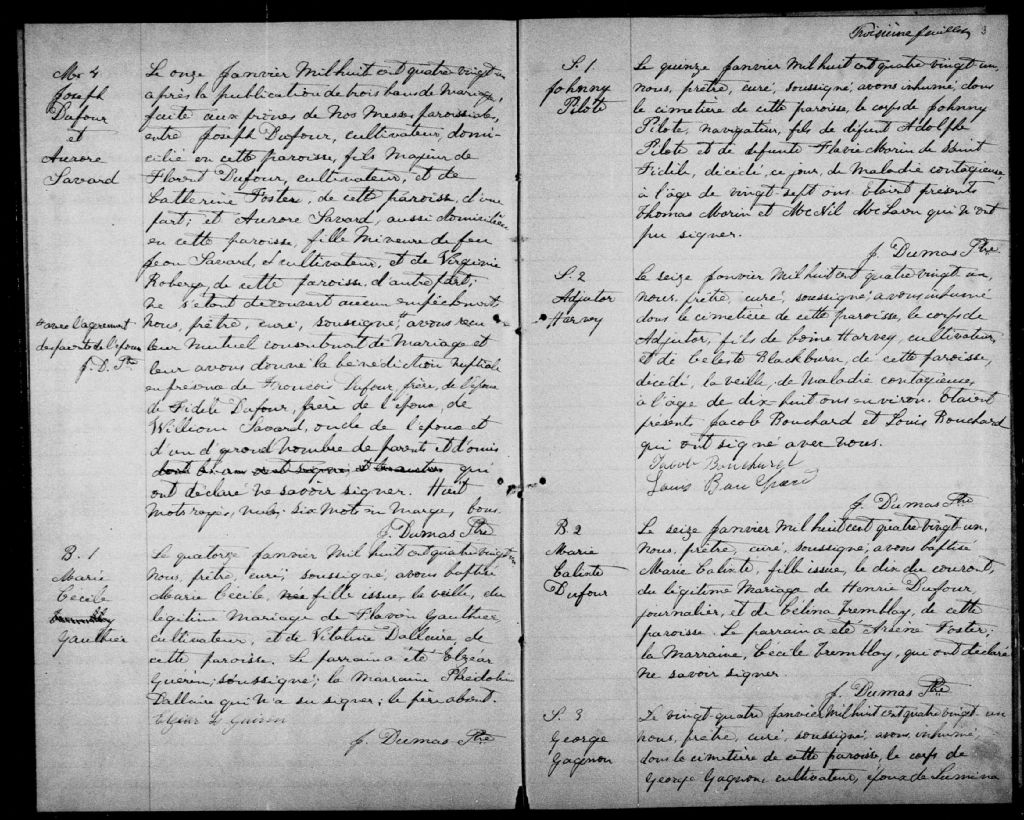 M. 4
Joseph
Dufour
et
Aurore
Savard
Le onze Janvier Mil huit cent quatre vingt un
après la publication de trois bans de Mariage,
faite aux prônes de Nos Messes paroissiales,
entre Joseph Dufour, cultivateur, domi-
cilié en cette paroisse, fils Majeur de
Florent Dufour, cultivateur, et de
Catherine Foster, de cette paroisse, d'une
part; et Aurore Savard, aussi domiciliée
en cette paroisse, fille Mineure de feu
Jean Savard, cultivateur, et de Virginie
Roberge, de cette paroisse, d'autre part;
ne s'étant découvert aucun empêchement,
Nous, prêtre, curé, soussigné, avons reçu
leur Mutuel consentement de Mariage et
leur avons donné la bénédiction nuptiale
en présence de François Dufour, frère, de l'époux
de Fidèle Dufour, frère de l'époux, de
William Savard, oncle de l'épouse et
d'un grand nombre de parents et d'amis
qui
ont déclaré ne savoir signer. Huit
Mots rayés, nuls; six Mots en marge, bons.
J. Dumas Ptre
avec l'agrément
des parents de l'épouse
J. D. Ptre
B. 1
Marie
Cécile
Gauthier
Le quatorze Janvier Mil huit cent quatre vingt-un
Nous, prêtre, curé, soussigné, avons baptisé
Marie Cécile, fille issue, la veille, du
légitime Mariage de Flavien Gauthier,
cultivateur, et de Vitaline Dallaire, de
cette paroisse. Le parrain a été Elzéar
Guérin, soussigné; la Marraine
Dallaire qui n'a su signer; le père absent.
Elzéar Guérin
J. Dumas Ptre
Troisième feuillet 3
S. 1
Johnny
Pilote
Le quinze Janvier Mil huit cent quatre vingt-un,
nous, prêtre, curé, soussigné, avons inhumé, dans
le cimetière de cette paroisse, le corps de Johnny
Pilote, navigateur, fils de défunt Adolphe
Pilote et de défunte Flavie Morin de Saint
Fidèle, décédé, ce jour, de Maladie contagieuse,
à l'âge de vingt sept ans. Etaient présents
Thomas Morin et McNil McLaren qui n'ont
pu signer.
J. Dumas Ptre
S. 2
Adjutor
Harvey
Le seize Janvier Mil huit cent quatre vingt un,
nous, prêtre, curé, soussigné, avons inhumé
dans le cimetière de cette paroisse, le corps de
Adjutor, fils de Côme Harvey, cultivateur,
et de Céleste Blackburn, de cette paroisse,
décédé, la veille, de Maladie contagieuse,
à l'âge de dix-huit ans environ. Etaient
présents Jacob Bouchard et Louis Bouchard
qui ont signé avec nous.
Jacob Bouchard
Louis Bouchard
J. Dumas Ptre
B. 2
Marie
Calixte
Dufour
Le seize Janvier Mil huit cent quatre-vingt un,
Nous, prêtre, curé, soussigné, avons baptisé
Marie Calixte, fille issue, le dix du courant,
du légitime Mariage de Henrie Dufour,
journalier, et de Célina Tremblay, de cette
paroisse. Le parrain a été Arsène Foster;
la Marraine, Cécile Tremblay, qui ont déclaré
ne savoir signer.
J. Dumas Ptre
S. 3
George
Gagnon
Le vingt-quatre Janvier Mil huit cent quatre vingt-un
nous, prêtre, curé, soussigné, avons inhumé,
dans le cimetière de cette paroisse, le corps de
George Gagnon, cultivateur, époux de Lumina